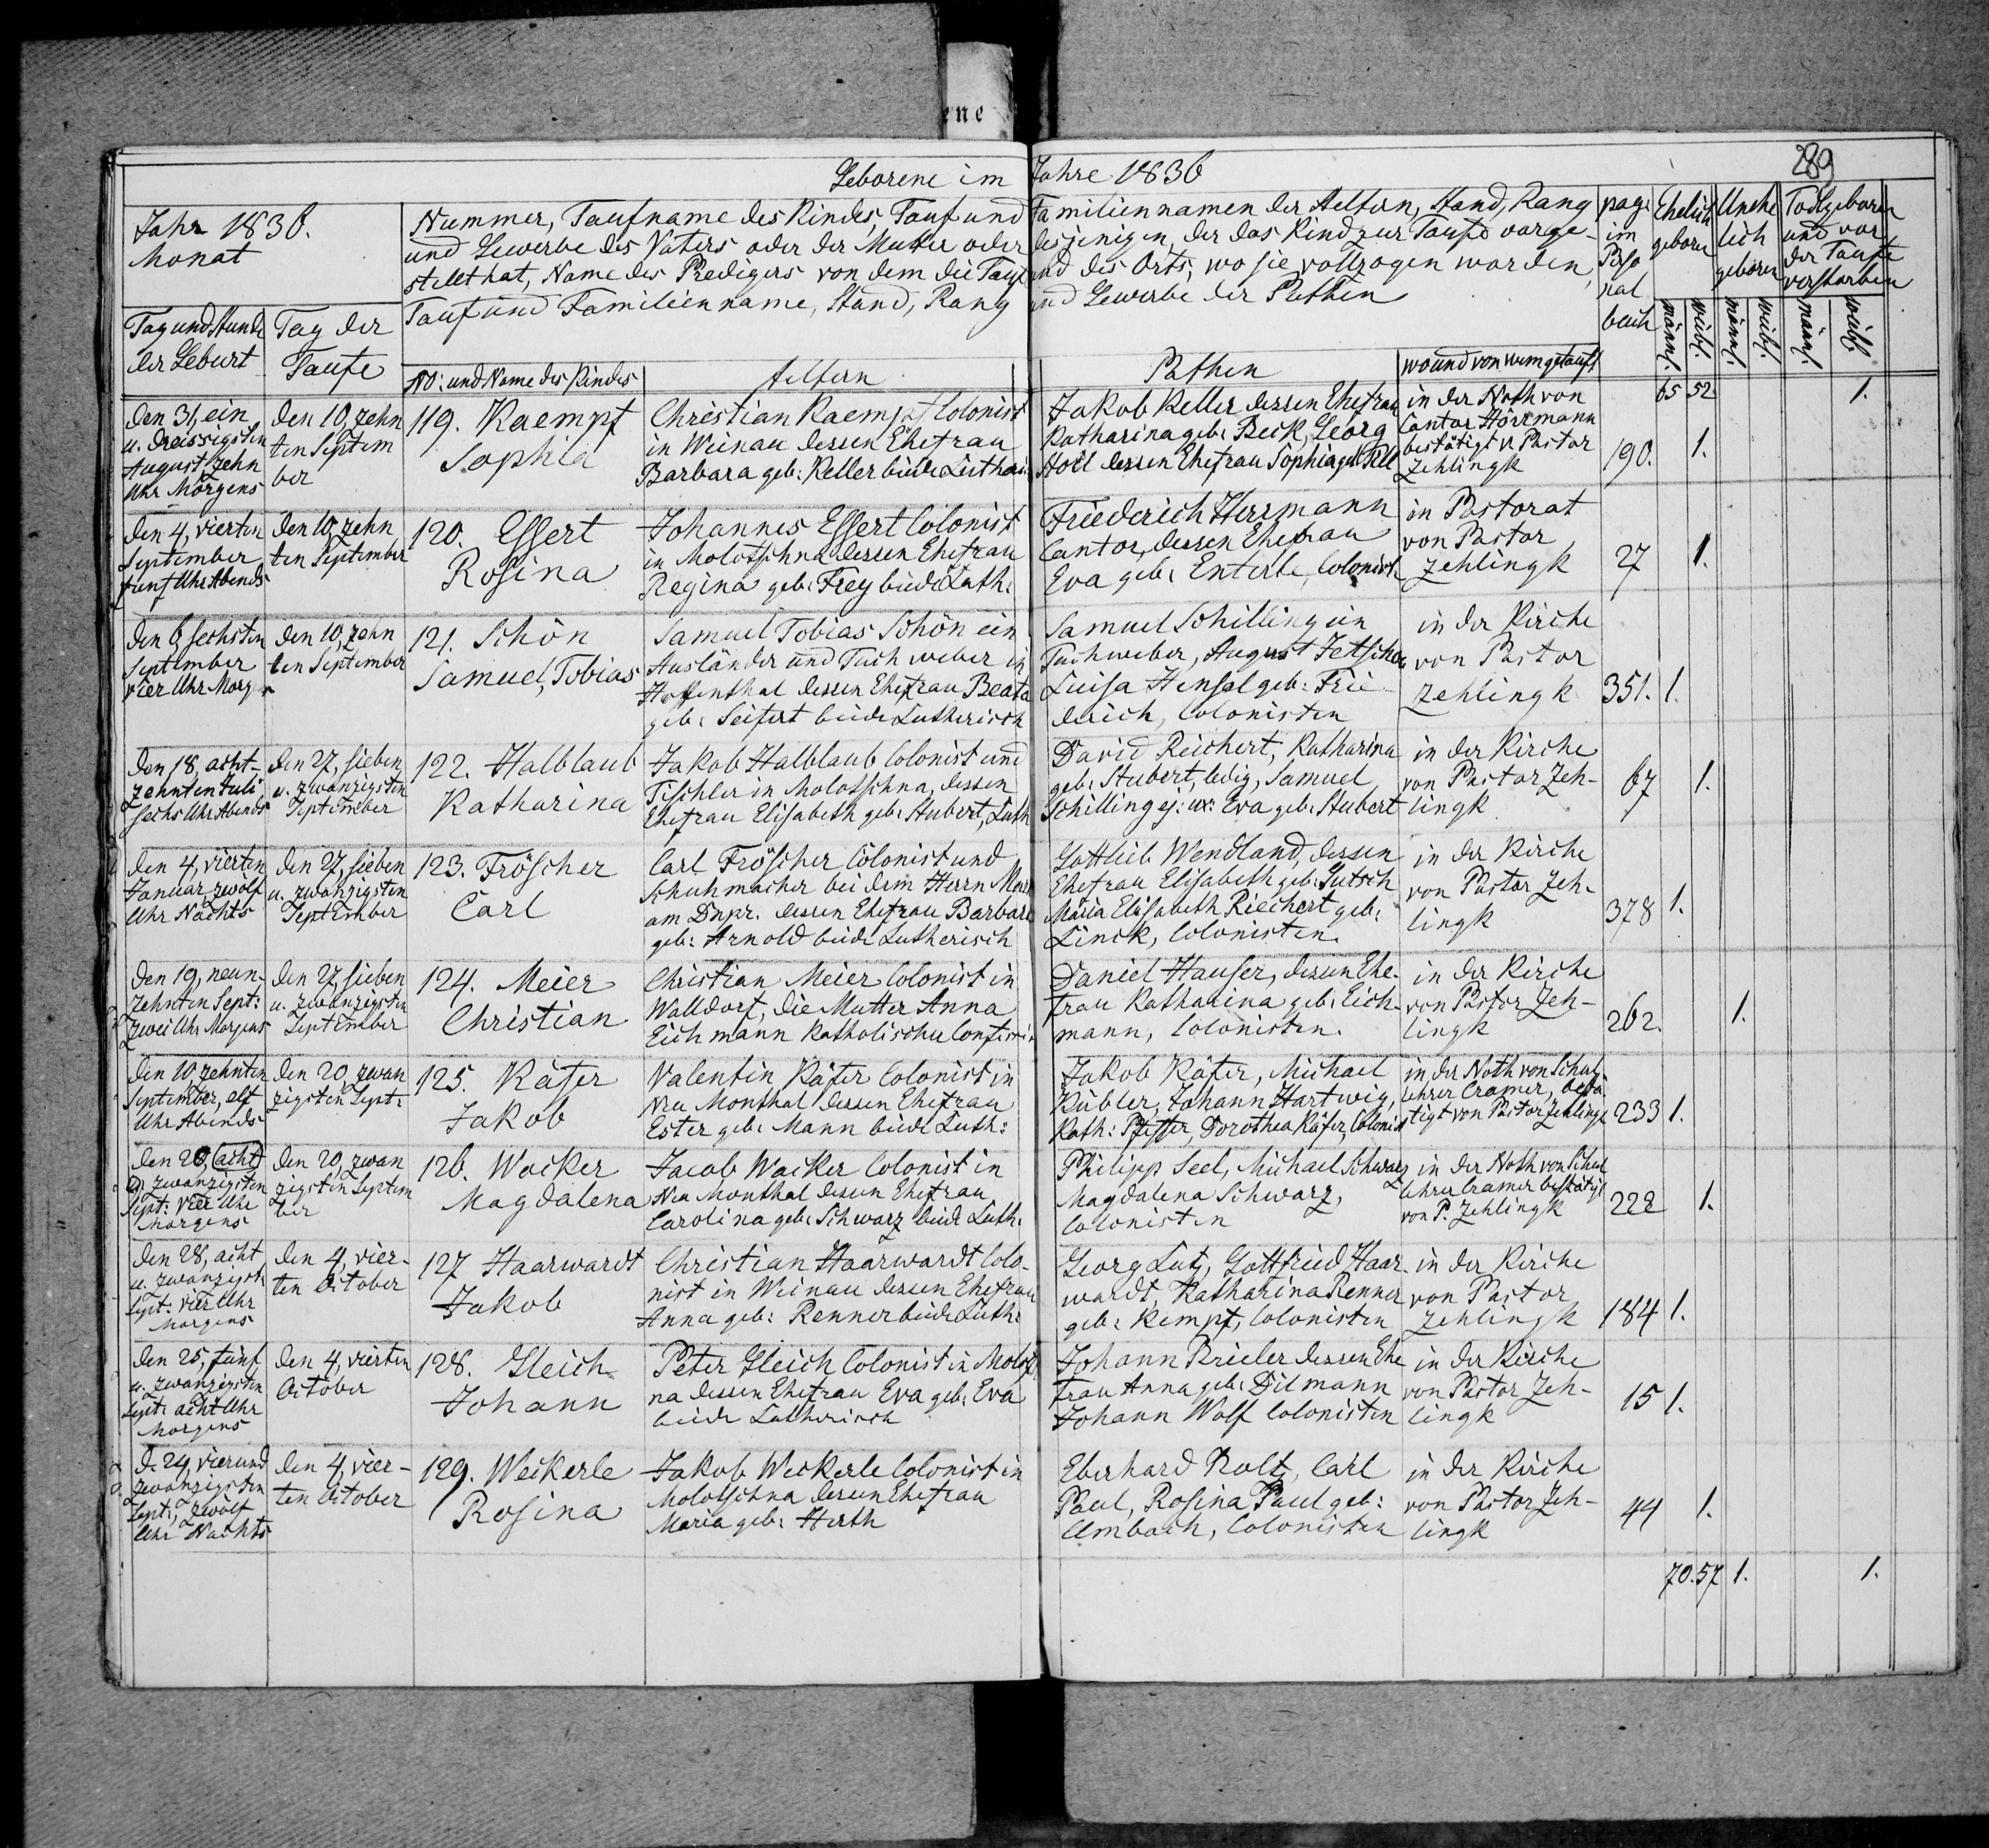 ene
Geborene im Jahre 1836
289
Jahr 1836.
Monat
Nummer, Taufname des Kindes, Tauf und Familiennamen der Aeltern, Stand, Rang
und Gewerbe des Vaters oder der Mutter oder desjenigen, der das Kind zur Taufe vorge-
stellt hat, Name des Predigers von dem die Taufe und des Orts, wo sie vollzogen worden,
Tauf und Familienname, Stand, Rang und Gewerbe der Pathen
pag:
im
Perso
nal
buch
Ehelich
geboren
Unehe
lich
geboren
Todtgeboren
und vor
der Taufe
verstorben
Tag und Stunde
der Geburt
Tag der
Taufe
No: und Name des Kindes
Aeltern
Pathen
wo und von wem getauft
männl. weibl. männl. weibl. männl. weibl.
65 52 1.
den 31, ein
u. dreissigsten
August, zehn
Uhr Morgens
den 10, zehn
ten Septem
ber
119. Kaempf
Sophia
Christian Kaempf Colonist
in Weinau dessen Ehefrau
Barbara geb: Keller beide Luther:
Jakob Keller dessen Ehefrau
Katharina geb: Beck, Georg
Stoll dessen Ehefrau Sophia geb:
in der Noth von
Cantor Hörrmann
bestätigt v. Pastor
Zehlingk
190. 1.
den 4, vierten
September
fünf Uhr Abends
den 10, zehn
ten September
120. Essert
Rosina
Johannes Essert Colonist
in Molotschna dessen Ehefrau
Regina geb: Frey beide Luth:
Friederich Herrmann
Cantor, dessen Ehefrau
Eva geb: Enterle, Colonist.
in Pastorat
von Pastor
Zehlingk
27 1.
den 6, sechsten
September
vier Uhr Morg
den 10, zehn
ten September
121. Schön
Samuel, Tobias
Samuel Tobias Schön ein
Ausländer und Tuchweber in
Hoffenthal dessen Ehefrau Beata
geb: Seifert beide Lutherisch
Samuel Schilling ein
Tuchweber, August Jetschke
Luisa Hensel geb: Frie-
derich, Colonisten
in der Kirche
von Pastor
Zehlingk
351. 1.
den 18, acht-
zehnten Juli,
sechs Uhr Abends
den 27, sieben
u. zwanzigsten
September
122. Halblaub
Katharina
Jakob Halblaub Colonist und
Tischler in Molotschna, dessen
Ehefrau Elisabeth geb: Stubert, Luth
David Reichert, Katharina
geb: Stubert, ledig, Samuel
Schilling ej: ux: Eva geb: Stubert
in der Kirche
von Pastor Zeh-
lingk
67 1.
den 4, vierten
Januar, zwölf
Uhr Nachts
den 27, sieben
u. zwanzigsten
September
123. Fröscher
Carl
Carl Fröscher Colonist und
Schuhmacher bei dem Herrn
am Dnpr. dessen Ehefrau Barbara
geb: Arnold beide Lutherisch
Gottlieb Wendland, dessen
Ehefrau Elisabeth geb: Gutsch
Maria Elisabeth Riechert geb:
Linck, Colonisten.
in der Kirche
von Pastor Zeh-
lingk
378 1.
den 19, neun-
zehnten Sept:
zwei Uhr Morgens
den 27, sieben
u. zwanzigsten
September
124. Meier
Christian
Christian Meier Colonist in
Walldorf, die Mutter Anna
Eichmann Katholischer
Daniel Hauser, dessen Ehe-
frau Katharina geb: Eich-
mann, Colonisten.
in der Kirche
von Pastor Zeh-
lingk
262. 1.
den 10 zehnten
September, elf
Uhr Abends
den 20, zwan
zigsten Sept:
125. Käfer
Jakob
Valentin Käfer Colonist in
Neu Monthal dessen Ehefrau
Ester geb: Mann beide Luth:
Jakob Käfer, Michael
Kübler, Johann Hartwig,
Kath: Pfeffer, Dorothea Käfer, Colonist
in der Noth von Schul
lehrer Cramer, bestä-
tigt von Pastor Zehlingk
233 1.
den 20, (acht)
u. zwanzigsten
Sept: vier Uhr
Morgens
den 20, zwan
zigsten Septem
ber
126. Wacker
Magdalena
Jacob Wacker Colonist in
Neu Monthal dessen Ehefrau
Carolina geb: Schwarz beide Luth:
Philipp Seel, Michael Schwarz
Magdalena Schwarz,
Colonisten
in der Noth von Schul
lehrer Cramer bestätigt
von P. Zehlingk
222 1.
den 28, acht
u. zwanzigst.
Sept: vier Uhr
Morgens
den 4, vier-
ten October
127 Haarwardt
Jakob
Christian Haarwardt Colo-
nist in Weinau dessen Ehefrau
Anna geb: Renner beide Luth:
Georg Lutz, Gottfried Haar-
wardt, Katharina Renner
geb: Kempf, Colonisten
in der Kirche
von Pastor
Zehlingk
184 1.
den 25, fünf
u. zwanzigsten
Sept: acht Uhr
Morgens
den 4, vierten
October
128. Gleich
Johann
Peter Gleich Colonist in Molosch
na dessen Ehefrau Eva geb: Eva
beide Lutherisch
Johann Brieler dessen Ehe
frau Anna geb: Dilmann
Johann Wolf Colonisten
in der Kirche
von Pastor Zeh-
lingk
15 1.
d. 24, vier und
zwanzigsten
Sept:, zwölf
Uhr Nachts
den 4, vier-
ten October
129. Weikerle
Rosina
Jakob Weckerle Colonist in
Molotschna dessen Ehefrau
Maria geb: Herth
Eberhard Rolt, Carl
Paul, Rosina Paul geb:
Umbach, Colonisten
in der Kirche
von Pastor Zeh-
lingk
44 1.
70. 57 1. 1.